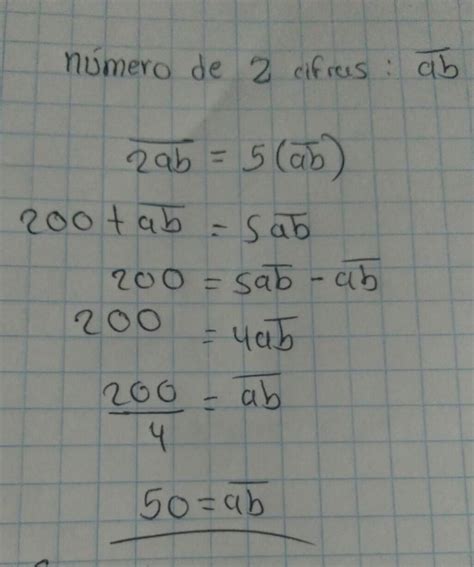 número de 2 cifras: a͞b
2͞a͞b = 5(a͞b)
200 + a͞b = 5a͞b
200 = 5a͞b - a͞b
200 = 4a͞b
200/4 = a͞b
50 = a͞b